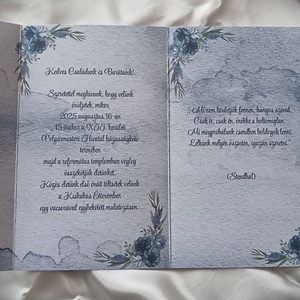 Kedves Családunk és Barátaink!
Szeretettel meghívunk, hogy velünk
örüljetek, mikor
2025 augusztus 16-án
15 órakor a XVII. kerületi
Polgármesteri Hivatal házasságkötő
termében
majd a református templomban végleg
összekötjük életünket.
Közös életünk első óráit töltsétek velünk
a Kiskakas Étteremben
egy vacsorával egybekötött mulatozáson.
"Mi nem hirdetjük fennen, hangos szóval,
Csak te, csak én, örökké a boltomiglan.
Mi megpróbálunk csendben boldogok lenni,
Lelkünk mélyén őszintén, igazán szeretni."
(Stendhal)